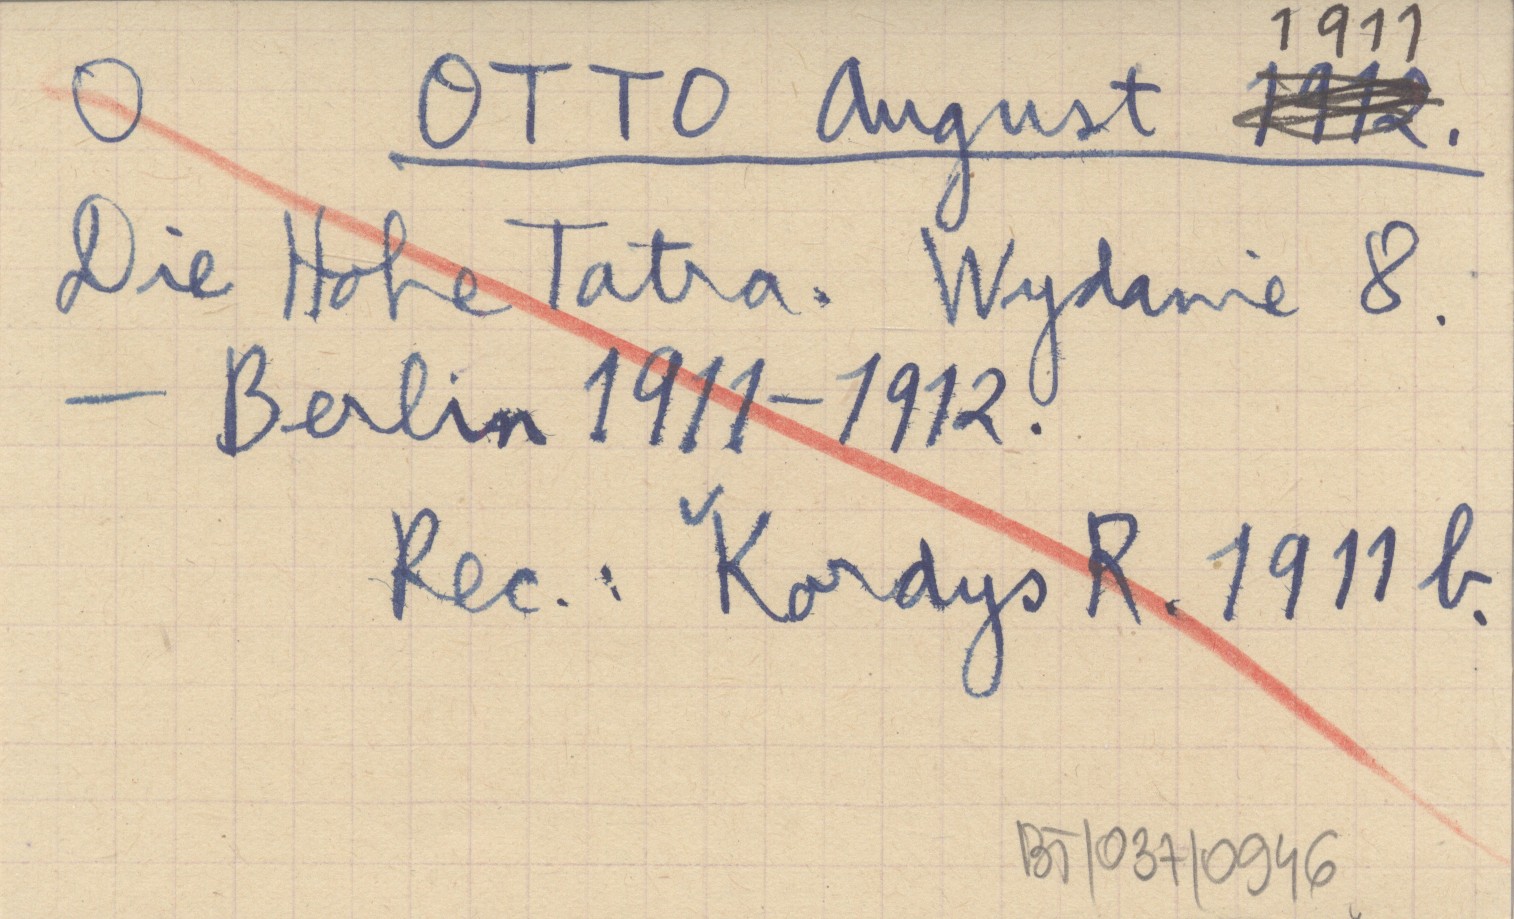 1911
O OTTO August 1912.
Die Hohe Tatra. Wydanie 8.
— Berlin 1911-1912.
Rec.: ✓Kordys R. 1911 b.
BT/037/0946